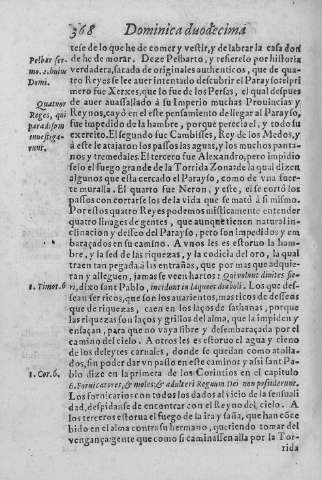 368 Dominica duodecima
tese de lo que he de comer y vestir, y de labrar la casa don
de he de morar. Deze Pelbarto, y refierelo por historia
verdadera, sacada de originales authenticos, que de qua-
tro Reyes se lee auer intentado descubrir el Parayso: el pri
mero fue Xerxes, que lo fue de los Persas, el qual despues
de auer auassallado à su Imperio muchas Prouincias y
Reynos, cayò en el este pensamiento de llegar al Parayso,
fue impedido de la hambre, porque perecia el, y todo su
exercito. El segundo fue Cambisses, Rey de los Medos, y
à este le atajaron los passos las aguas, y los muchos panta-
nos y tremedales. El tercero fue Alexandro, pero impidio
selo el fuego grande de la Torrida Zona: de la qual dizen
algunos que esta cercado el Parayso, como de vna fuer-
te muralla. El quarto fue Neron, y este, el se cortò los
passos con cortarse los de la vida que se matò à si mismo.
Por estos quatro Reyes podemos misticamente entender
quatro linages de gentes, que aunque tienen natural in-
clinacion y desseo del Parayso, pero son impedidos y em
baraçados en su camino. A vnos les es estoruo la ham-
bre, y la sed de las riquezas, y la codicia del oro, la qual
traen tan pegada à las entrañas, que por mas que adquie-
ran y alleguen, jamas se veen hartos: Qui volunt diuites fie-
ri, dixo sant Pablo, incidunt in laqueos diaboli. Los que des-
sean ser ricos, que son los auarientos, mas ricos de desseos
que de riquezas, caen en los laços de sathanas, porque
las riquezas son laços y grillos del alma, que la impiden y
enlaçan, para que no vaya libre y desembaraçada por el
camino del cielo. A otros les es estoruo el agua y cieno
de los deleytes carnales, donde se quedan como atolla-
dos, sin poder dar vn passo en este camino: y assi sant Pa-
blo dize en la primera de los Corintios en el capitulo
6. Fornicatores, & molles, & adulteri Regnum Dei non possidebunt.
Los fornicarios con todos los dados al vicio de la sensuali
dad, despidanse de encontrar con el Reyno del cielo. A
los terceros estorua el fuego de la ira y saña, que han cõce
bido en el alma contra su hermano, queriendo tomar del
vengança: gente que como si caminassen alla por la Tor-
rida
Pelbar ser-
mo. 2. huius
Domi.
Quatuor
Reges, qui
paradisum
inuestiga-
runt.
1. Timot. 6
1. Cor. 6.